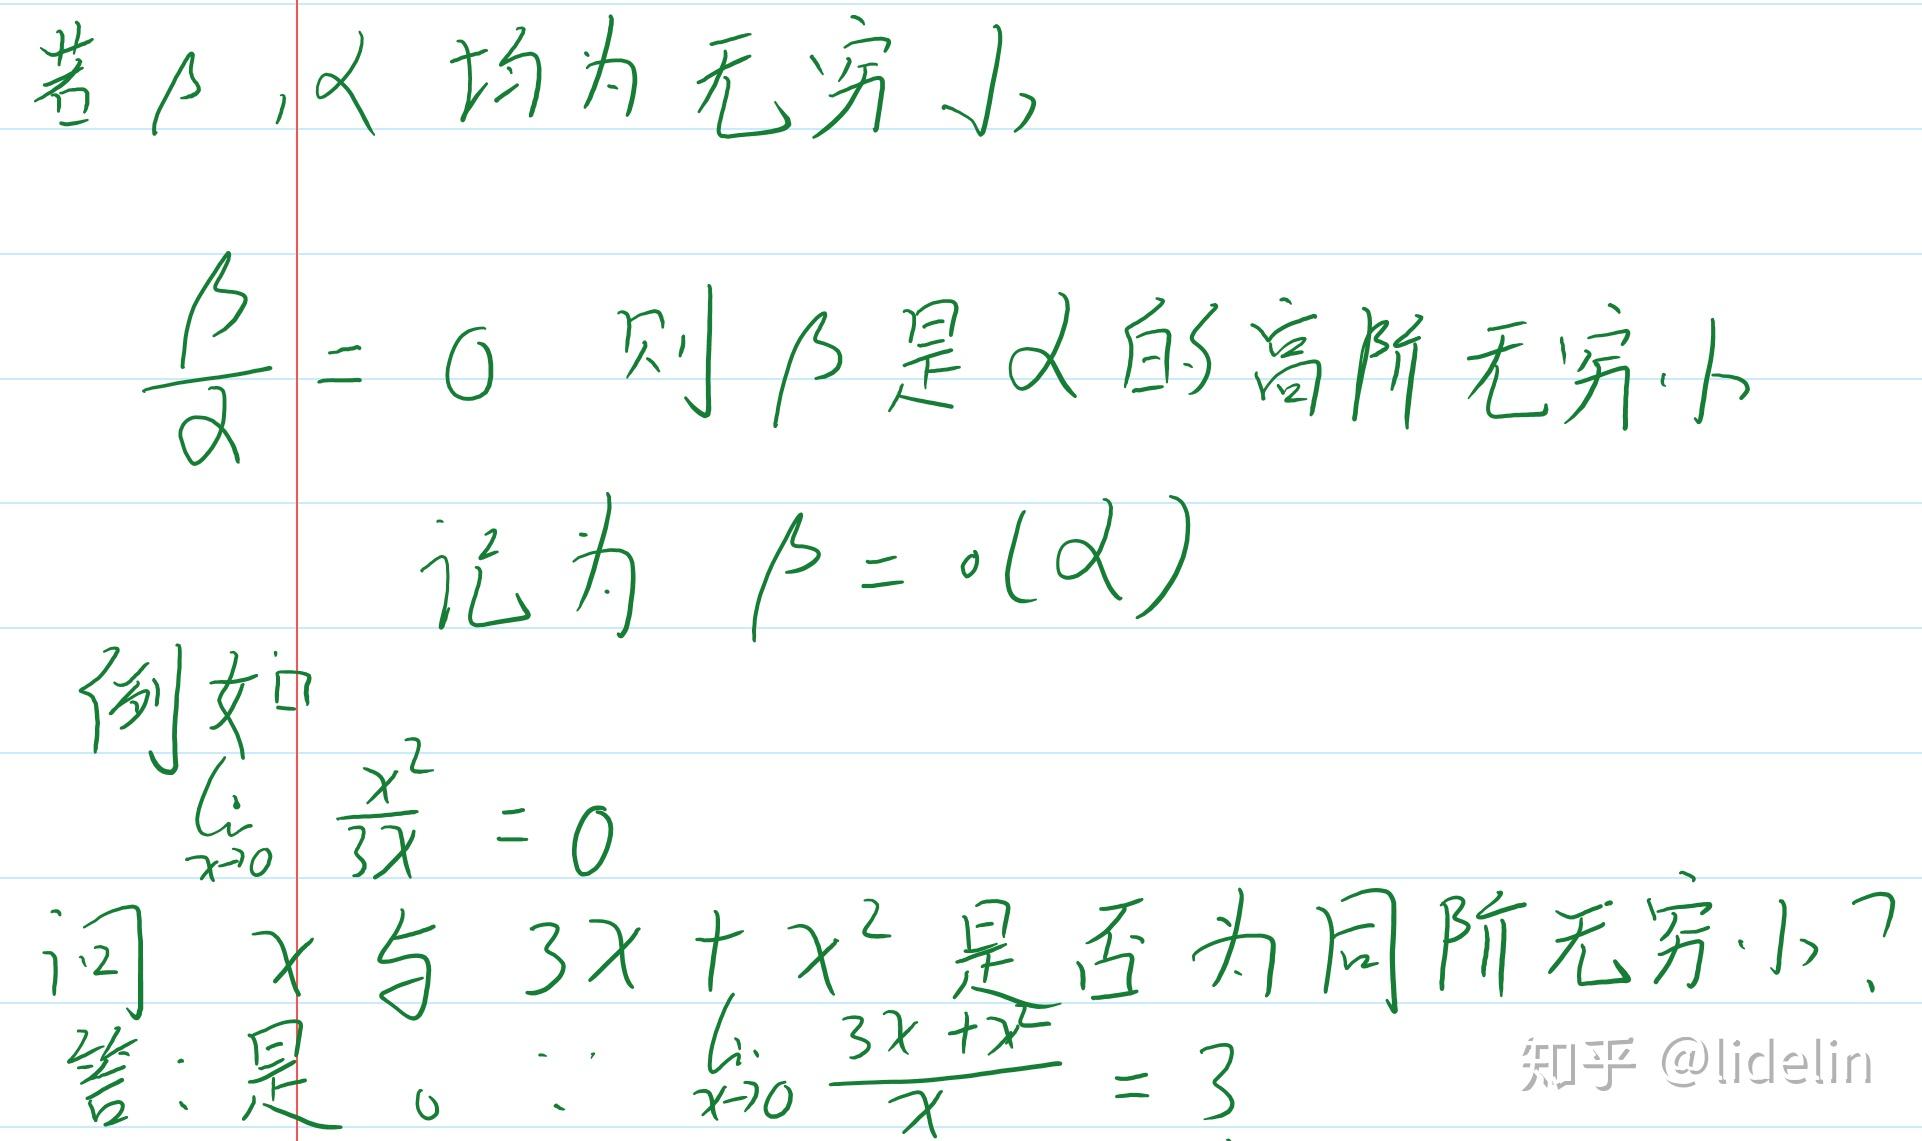 若 β, α 均为无穷小
β/α = 0 则 β 是 α 的高阶无穷小
记为 β = o(α)
例如
lim x→0 x²/3x = 0
问 x 与 3x + x² 是否为同阶无穷小?
答:是。∵ lim x→0 (3x+x²)/x = 3
知乎 @lidelin